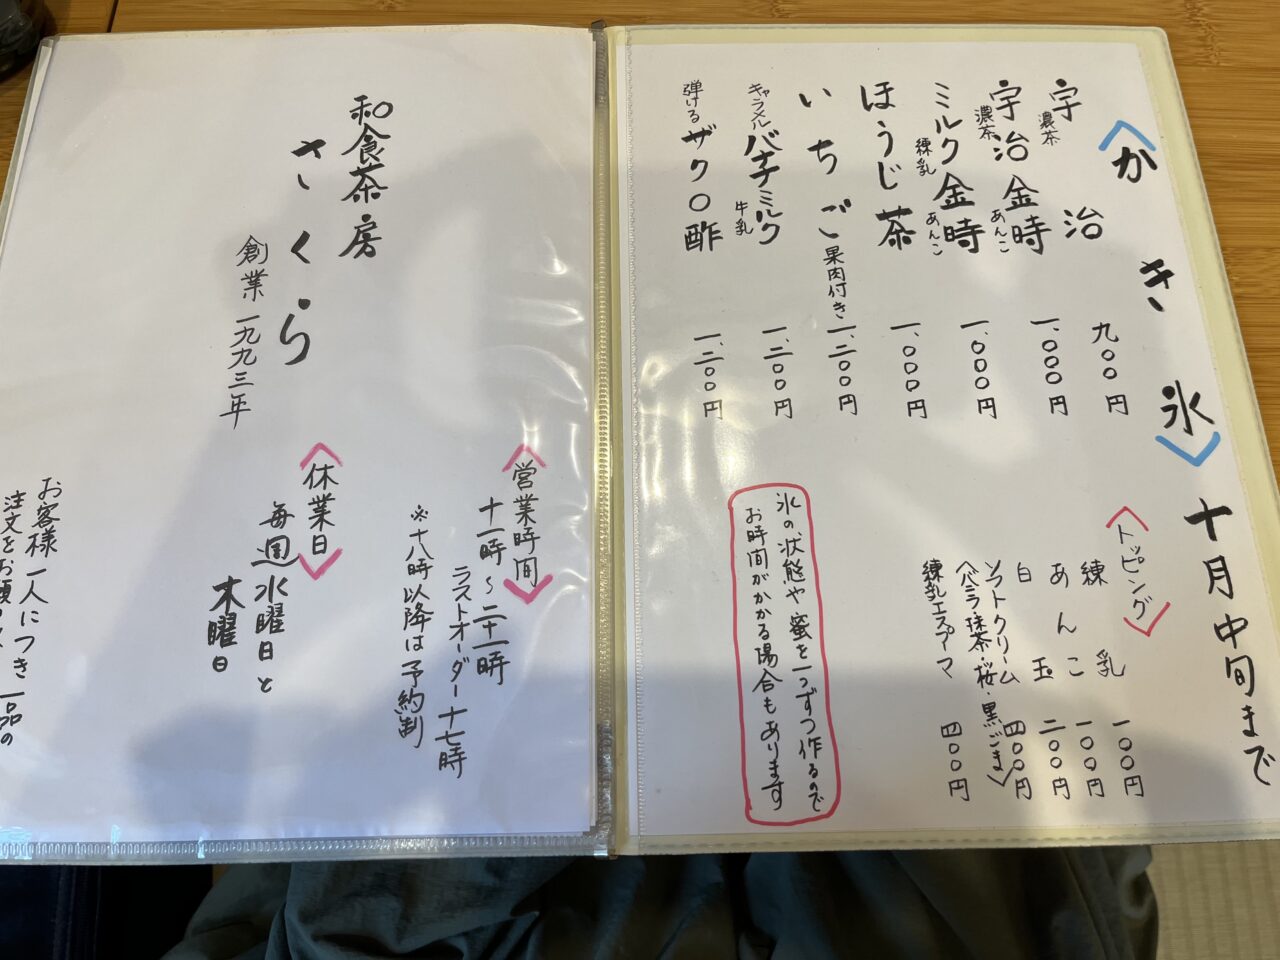 〈かき氷〉十月中旬まで
宇治 濃茶 九〇〇円
宇治金時 濃茶 あんこ 一、〇〇〇円
ミルク金時 練乳 あんこ 一、〇〇〇円
ほうじ茶 一、〇〇〇円
いちご 果肉付き 一、二〇〇円
キャラメルバナナミルク 牛乳 一、二〇〇円
弾けるザクロ酢 一、二〇〇円
〈トッピング〉
練乳 一〇〇円
あんこ 一〇〇円
白玉 二〇〇円
ソフトクリーム 四〇〇円
(バニラ・抹茶・桜・黒ごま)
練乳エスプーマ 四〇〇円
氷の、状態や蜜を一つずつ作るので
お時間がかかる場合もあります
和食茶房
さくら
創業一九九三年
〈営業時間〉
十一時〜二十一時
ラストオーダー十七時
※十八時以降は予約制
〈休業日〉
毎週水曜日と
木曜日
お客様一人につき一品の
注文をお願